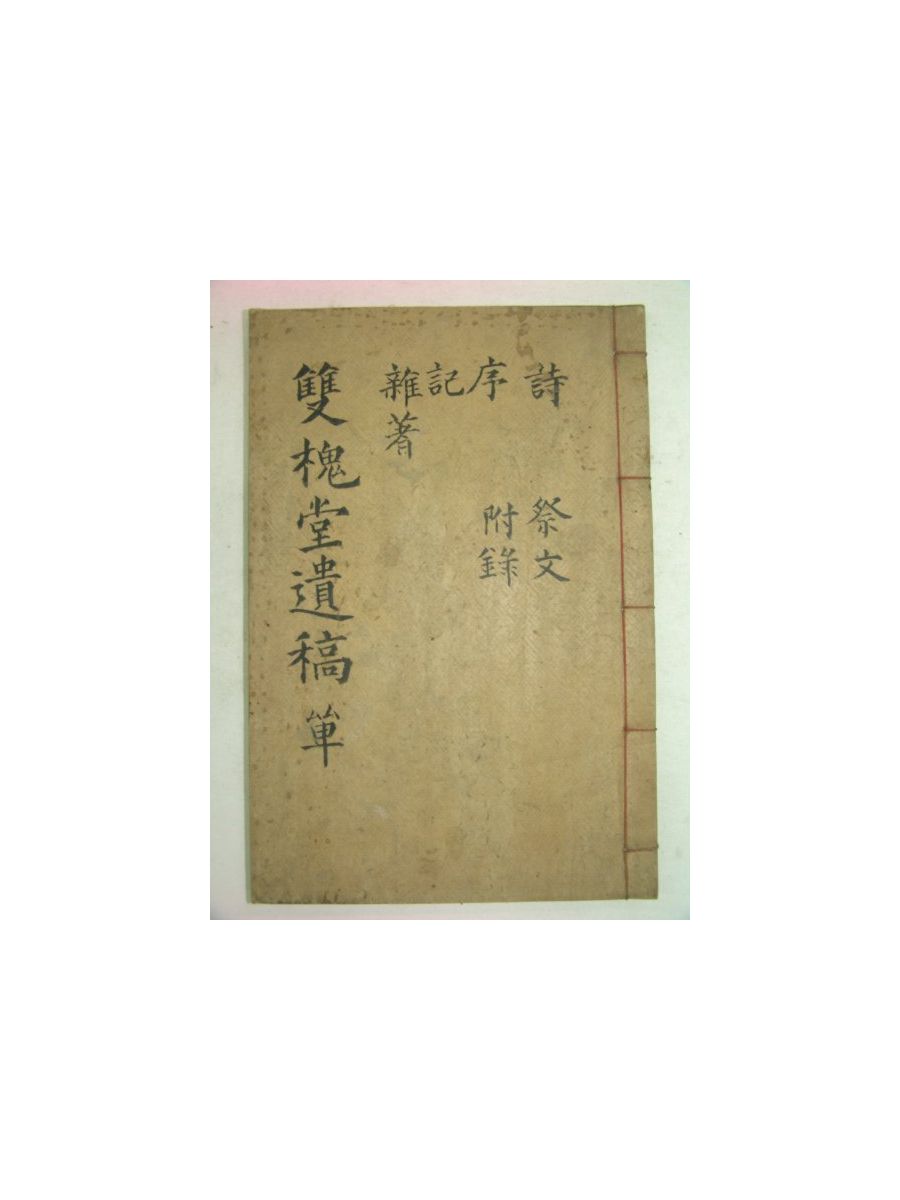 詩
序
記
雜著
祭文
附錄
雙槐堂遺稿 単